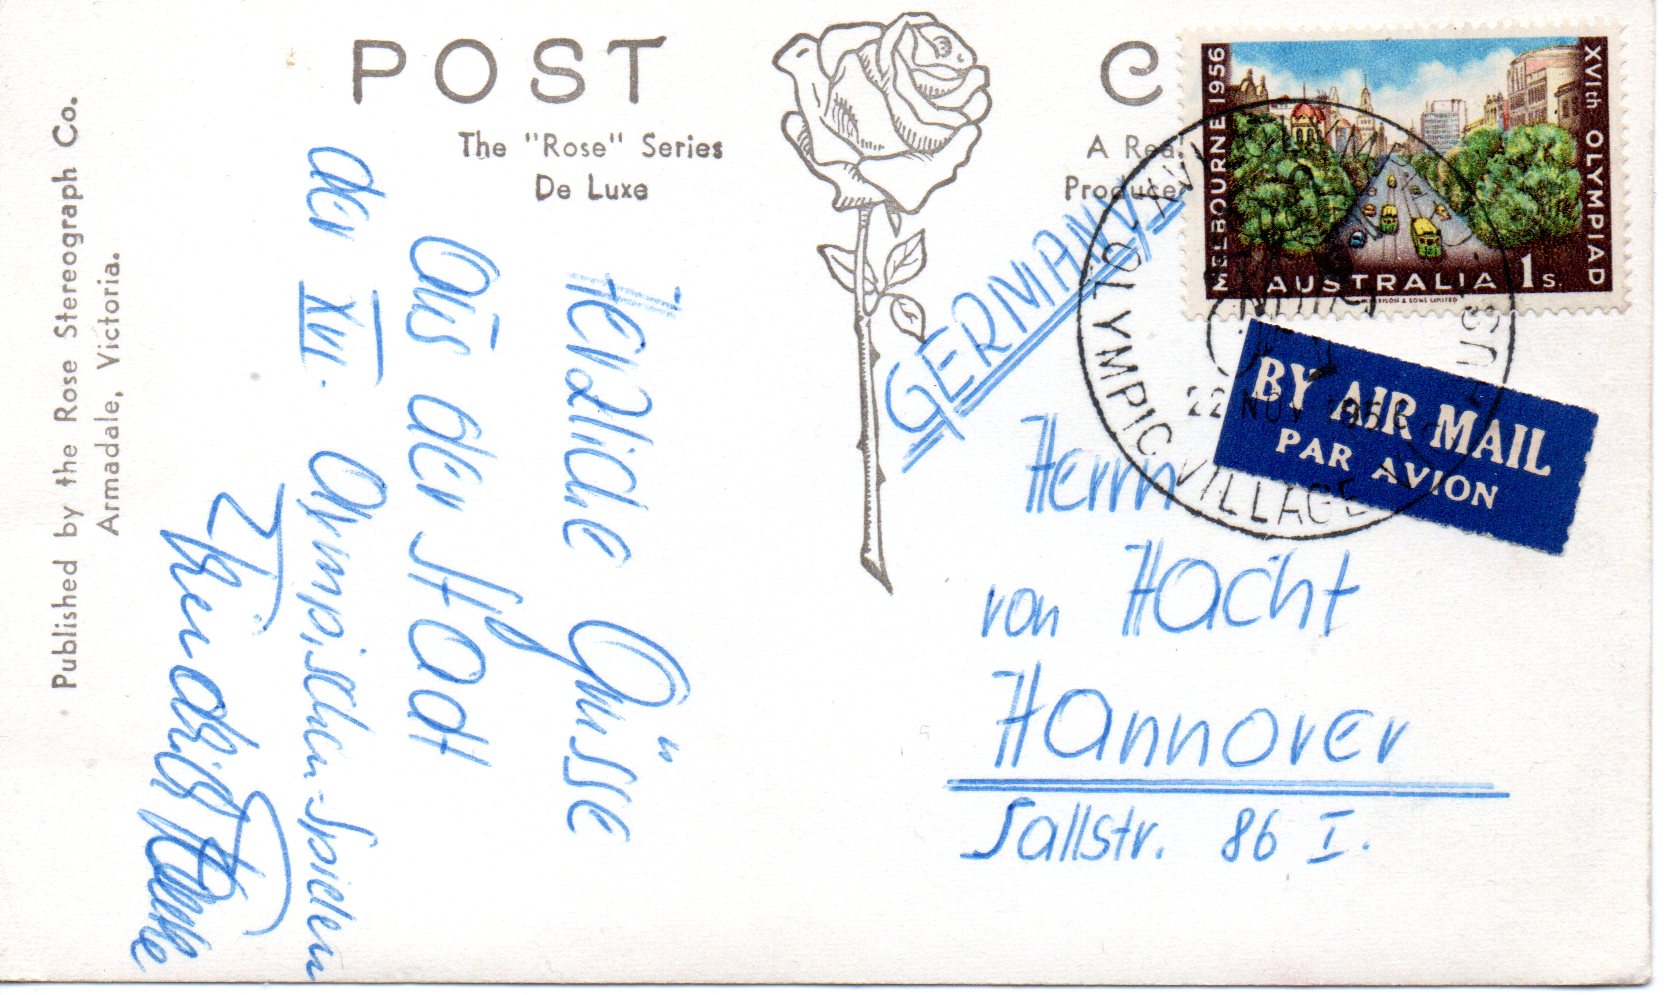 POST C
The "Rose" Series
De Luxe
A Real
Produce
Published by the Rose Stereograph Co.
Armadale, Victoria.
MELBOURNE 1956
XVIth OLYMPIAD
AUSTRALIA 1s
OLYMPIC VILLAGE
22 NOV 1956
BY AIR MAIL
PAR AVION
GERMANY
Herrn
von Hacht
Hannover
Sallstr. 86 I.
Herzliche Grüsse
aus der Stadt
der XVI. Olympischen-Spielen